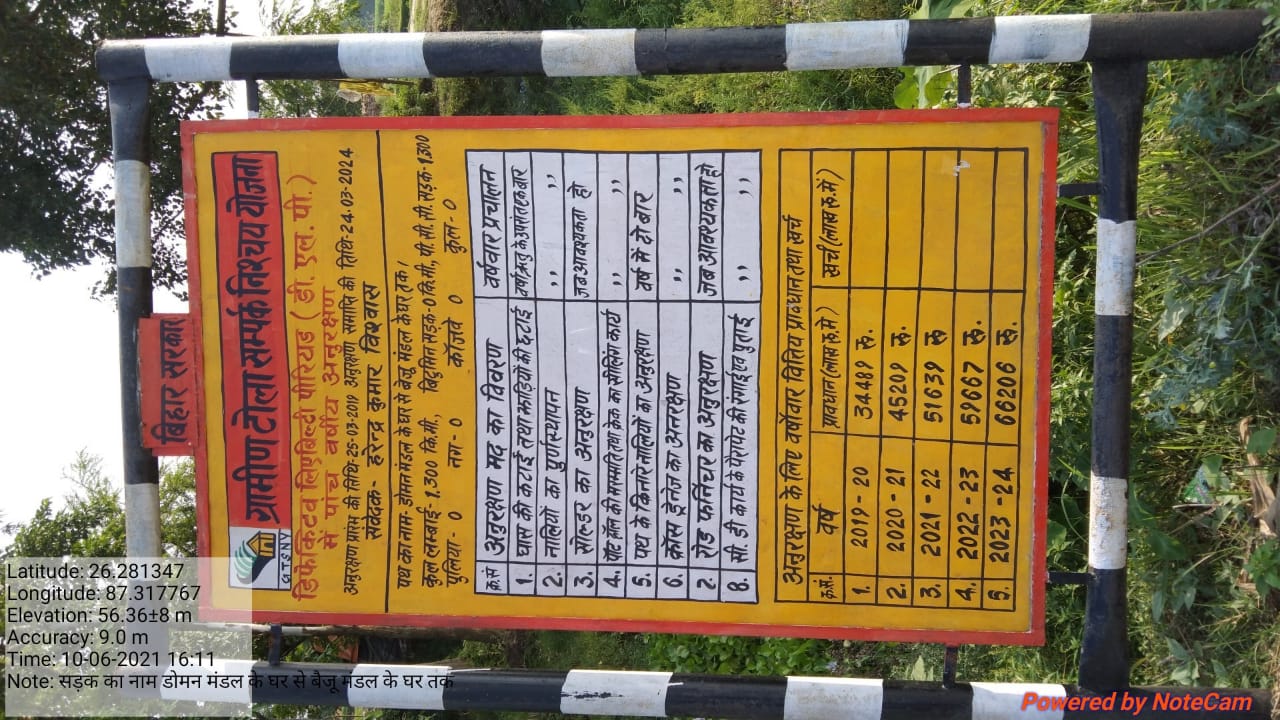 बिहार सरकार
G T S N Y
ग्रामीण टोला सम्पर्क निश्चय योजना
डिफेक्टिव लिएबिल्टी पीरियड ( डी. एल. पी. )
में पांच वर्षीय अनुरक्षण
अनुरक्षण प्रारंभ की तिथि-25-03-2019 अनुरक्षण समाप्ति की तिथि-24-03-2024
संवेदक- हरेन्द्र कुमार विश्वास
पथ का नाम डोमन मंडल के घर से बैजू मंडल के घर तक।
कुल लम्बाई-1.300 कि.मी., बिटुमिन सड़क-0 कि.मी., पी.सी.सी. सड़क-1.300
पुलिया- 0 नग- 0 कॉजवे 0 कुल- 0
क्र.सं अनुरक्षण मद का विवरण वर्षवार प्रचालन
1. घास की कटाई तथा झाड़ियों की छटाई वर्षा ऋतु के उपरांत एक बार
2. नालियों का पुर्णस्थापन ,, ,,
3. सोल्डर का अनुरक्षण जब आवश्यकता हो
4. पोट हौल की मरम्मति तथा क्रेक का सीलिंग कार्य ,, ,,
5. पथ के किनारे नालियों का अनुरक्षण वर्ष में दो बार
6. क्रॉस ड्रेनेज का अनरक्षण ,, ,,
7. रोड फर्निचर का अनुरक्षण जब आवश्यकता हो
8. सी. डी कार्य के पैरापेट की रंगाई एवं पुताई ,, ,,
अनुरक्षण के लिए वर्षवार वित्तिय प्रावधान तथा खर्च
क्र.सं. वर्ष प्रावधान(लाख रु. में) खर्च(लाख रु. में)
1. 2019 - 20 34489 रु.
2. 2020 - 21 45209 रु.
3. 2021 - 22 51639 रु
4. 2022 - 23 59667 रु.
5. 2023 - 24 66206 रु.
Latitude: 26.281347
Longitude: 87.317767
Elevation: 56.36±8 m
Accuracy: 9.0 m
Time: 10-06-2021 16:11
Note: सड़क का नाम डोमन मंडल के घर से बैजू मंडल के घर तक
Powered by NoteCam